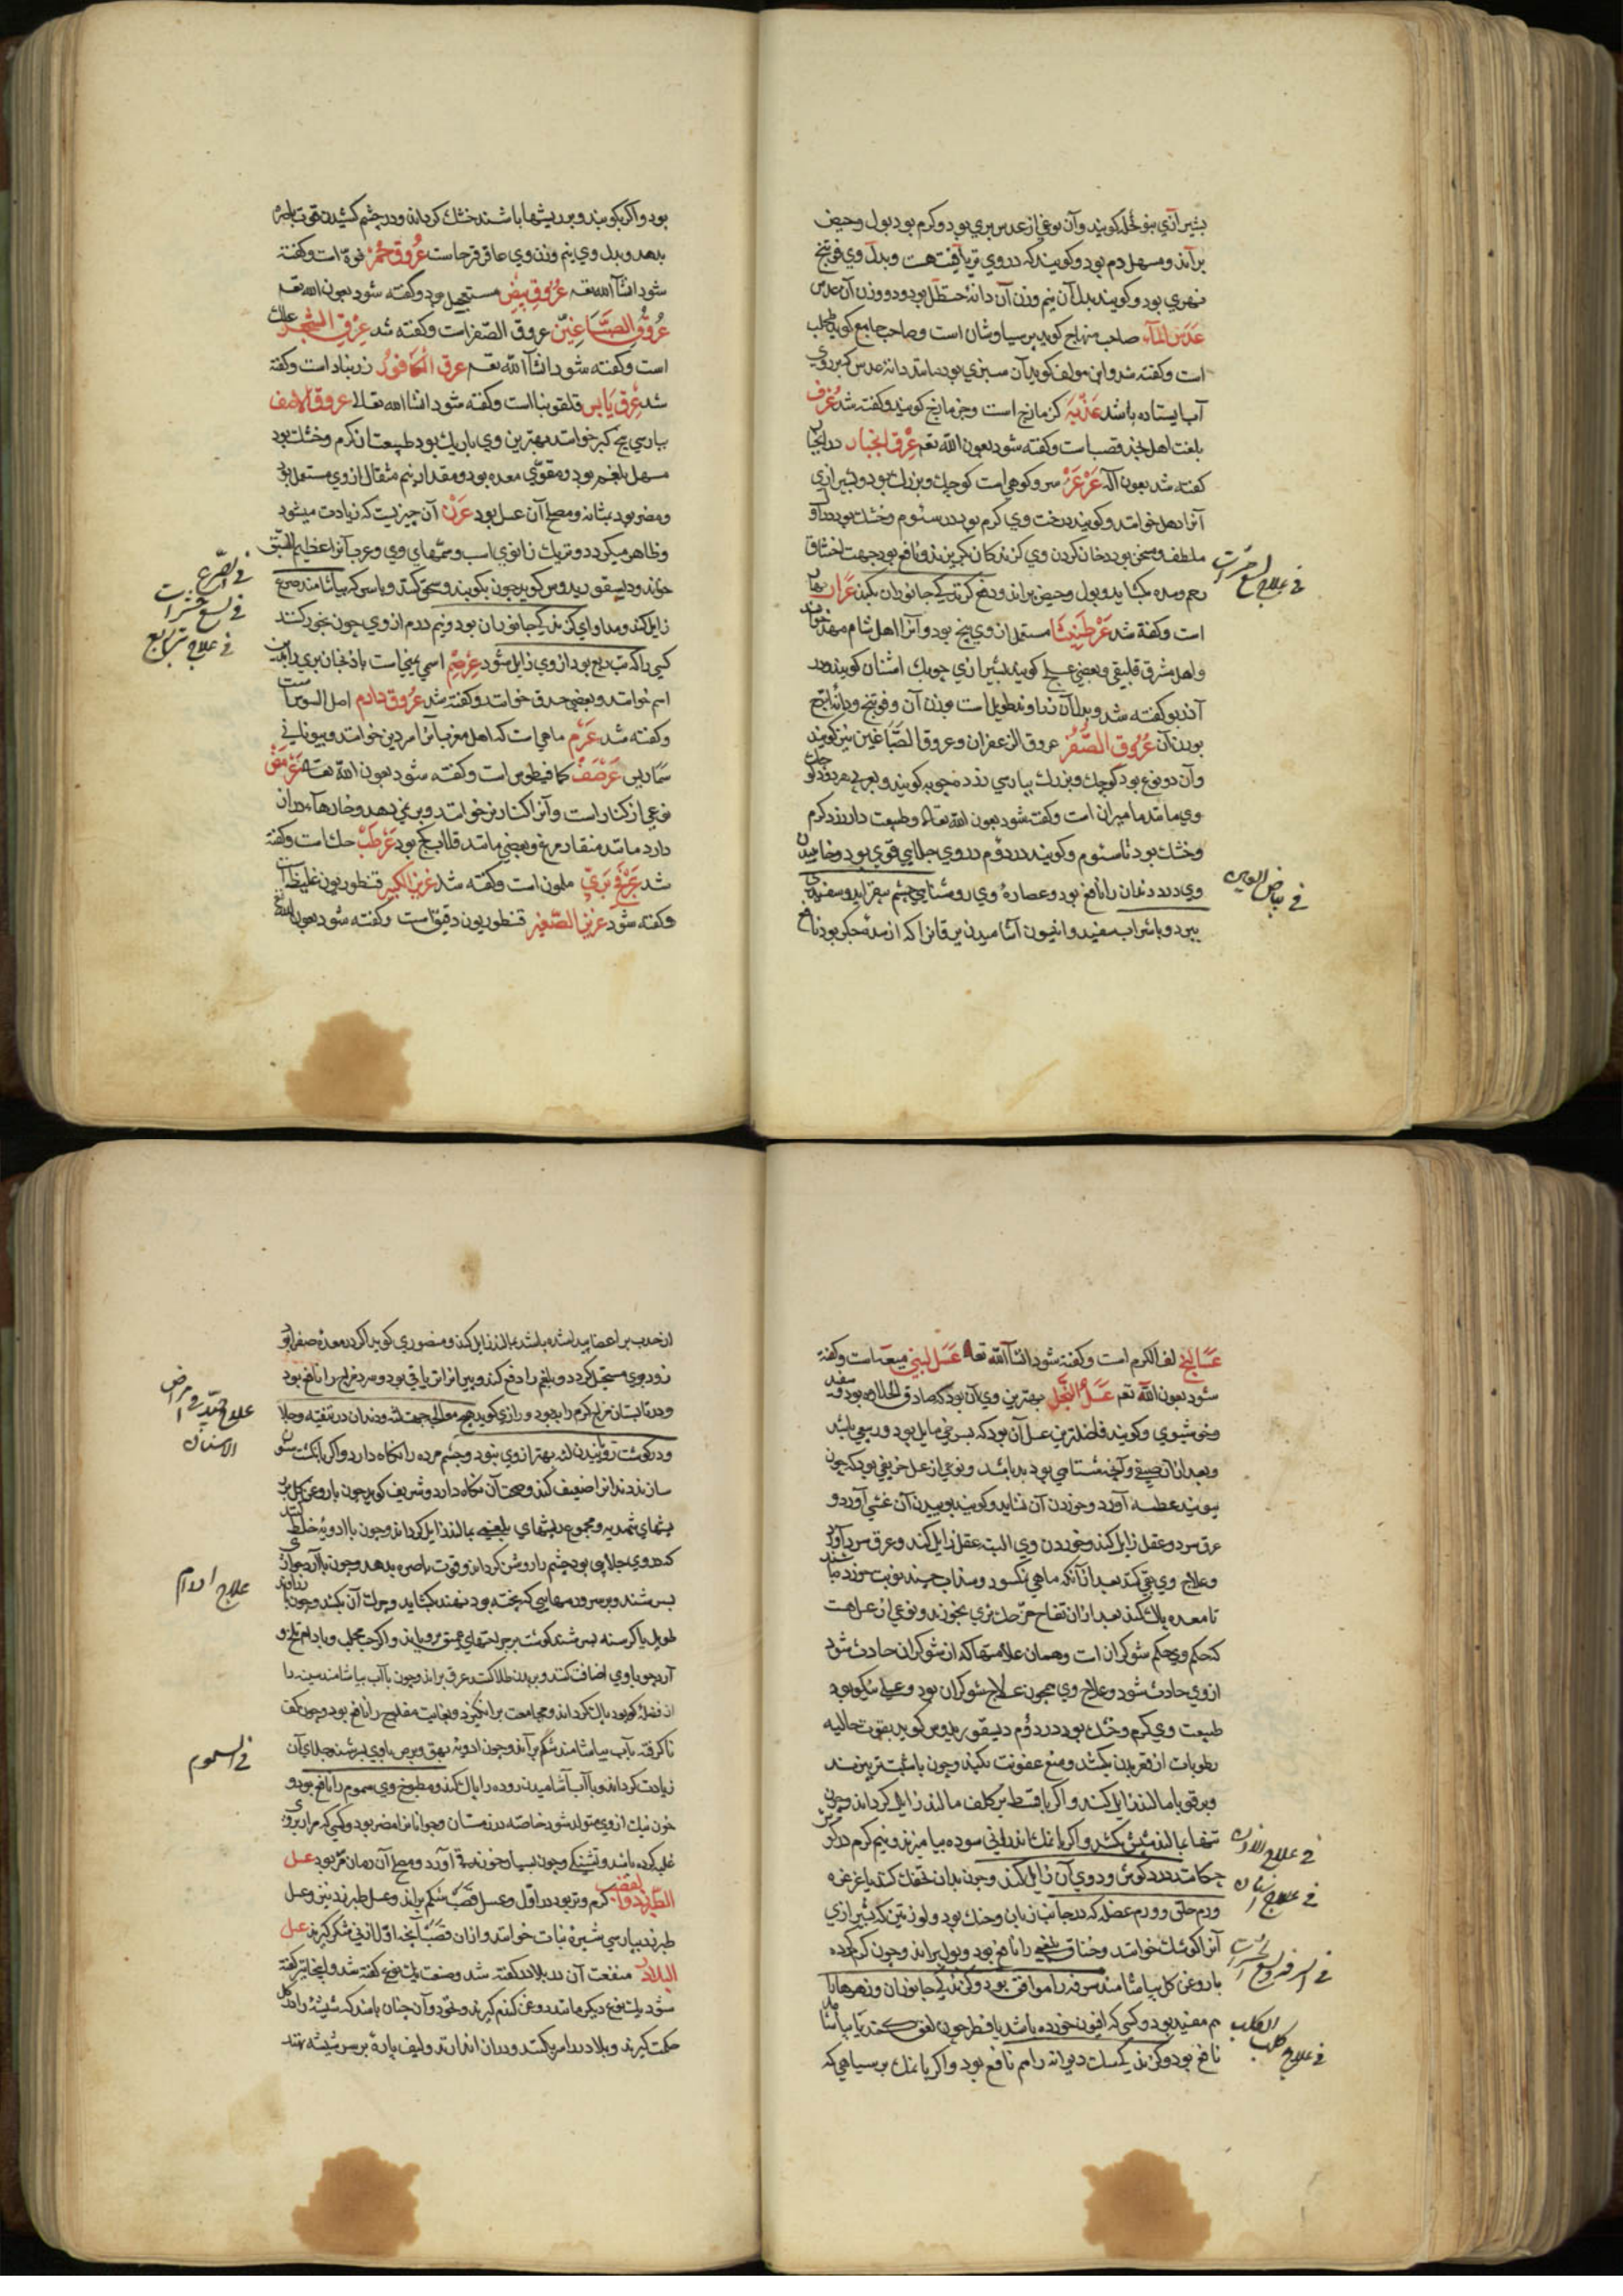 بشیرازی بنو نخله کویند وآن نوعی از عدس بری بود وکرم بود بول وحیض
براند ومسهل دم بود وکویند که در وی تریاقیت هست وبدل وی فوتنج
نهری بود وکویند بدل آن نیم وزن آن دانۀ حنظل بود ودو وزن آن عدس
عَدَس المآء صاحب منهاج کوید برسیاوشان است وصاحب جامع کوید طحلب
است وکفته شد واین مولف کوید آن سبزی بود مانند دانۀ عدس که بر روی
آب ایستاده باشد عَذْبَه کزمازج است وجزمازج کویند وکفته شد عُرُف
بلغت اهل نجد قصب است وکفته شود بعون الله تعم عِرْق انجبار در انجبار
کفته شد بعون الله عَرْعَرْ سرو کوهی است کوچک وبزرک بود وبشیرازی
آنرا دهل خوانند وکویند درخت وی کرم بود در سئوم وخشک بود در اول
ملطف ومسخن بود دخان کردن وی کزندکان بکریزند ونافع بود جهت اختناق
رحم وسده بکشاید وبول وحیض براند ودفع کزندکی جانوران بکند عَرار بهار
است وکفته شد عَرْطَنِیثا مستعمل از وی بیخ بود وآنرا اهل شام
واهل مشرق قلیقی وبعضی کویند بشیرازی چوبک اشنان کویند ودر
آذربو کفته شد وبدل آن زراوند طویل است وزن آن وفوتنج
بوزن آن عُرُوق الصُّفْر عروق الزعفران وعروق الصباغین نیز کویند
وآن دو نوع بود کوچک وبزرک بپارسی زرد چوبه کویند
وی مانند مامیران است وکفته شود بعون الله تعالی وطبیعت دارد کرم
وخشک بود تا سئوم وکویند در دوم در وی جلایی قوی بود وخاییدن
وی درد دندان را نافع بود وعصارۀ وی روشنایی چشم بیفزاید وسفیدی
ببرد وبا شراب سفید وانیسون آشامیدن یرقان را که از سدۀ جکر بود نافع
فی علاج لسع حشرات
فی بیاض العین
بود واکر بکوبند وبر ریشها باشند خشک کرداند ودر چشم کشیدن قوت باصره
بدهد وبدل وی نیم وزن وی عاقرقرحا است عُروق حُمْر فوّه است وکفته
شود انشآ الله تعم عُرُوق بِیض مستعجل بود وکفته شود بعون الله تعم
عُرُوق الصَبّاغین عروق الصفر است وکفته شد عِرْق الشجر علک
است وکفته شود انشآ الله تعم عرق الکافور زرنباد است وکفته
شد عِرْق یابس قلفونیا است وکفته شود انشا الله تعالی عروق الاصف
بپارسی بیخ کبر خوانند بهترین وی باریک بود طبیعت آن کرم وخشک بود
مسهل بلغم بود ومقوی معده بود ومقدار نیم مثقال از وی مستعمل بود
ومضر بود بمثانه ومصلح آن عسل بود عَرَنْ آن چیزیست که زیادت میشود
وظاهر میکردد ونزدیک زانوی اسب وسمهای وی وعرب آنرا عظیم
خوانند ودیسقوریدوس کوید چون بکوبند وسحق کنند وبا سرکه بیاشامند صرع
زایل کند ومداوای کزندکی جانوران بود ونیم درم از وی چون بخور کنند
کسی را که تب ربع بود از وی زایل شود عِرْصِم اسمی یمنی است باذنجان بری را بدین
اسم خوانند وبعضی حدق خوانند وکفته شد عرُوق دارم اصل السوس است
وکفته شد عَرَم ماهی است که اهل مغرب آنرا امردین خوانند وبیونانی
سَمَاریس عَرْصَف کمافیطوس است وکفته شود بعون الله تعا عَرْمَض
نوعی از کنار است وآنرا کنار بن خوانند وبر نمی دهد وخارها دراز
دارد مانند منقار مرغ وبعضی مانند قلاب کج بود عَرْطَب حلک است وکفته
شد عُرْوَ بَری ملون است وکفته شد عزیز الکبیر قنطوریون غلیظ است
وکفته شود عزیز الصّغیر قنطوریون دقیق است وکفته شود بعون الله تع
فی الصرع
فی لسع حشرات
فی علاج تب ربع
عَسَالِج لف الکرم است وکفته شود انشآ الله تعا عَسَل لبنی میعه است وکفته
شود بعون الله تعم عَسَل النَّحْل بهترین وی آن بود که صادق الحلاوه بود سفید
وخوشبوی وکویند فاضلترین عسل آن بود که بسرخی مایل بود وربیعی باشد
وبعد از آن صیفی وآنچه شتایی بود بد باشد ونوعی از عسل حریفی بود که چون
ببویند عطسه آورد وخوردن آن نشاید وکویند بوییدن آن غشی آورد و
عرق سرد وعقل زایل کند وخوردن وی البته عقل زایل کند وعرق سرد آورد
وعلاج وی بقی کند بعد از آنکه ماهی نمکسود وسداب چند نوبت خورده باشند
تا معده پاک کند بعد از آن تفاح بخورند ونوعی از عسل هست
که حکم وی حکم شوکران است وهمان علامتها که از شوکران حادث شود
از وی حادث شود وعلاج وی همچون علاج شوکران بود وعسل نیکو بود
طبیعت وی کرم وخشک بود در دوم دیسقوریدوس کوید بقوت جالیه
رطوبات از قعر بدن بکشد ومنع عفونت بکند وچون با شبت بپزند
وبر قوبا مالند زایل کند واکر با قسط بر کلف مالند زایل کرداند وچون
تنها بمالند شپش بکشد واکر با نمک اندرانی سوده بیامیزند ونیم کرم در کوش
چکانند درد کوش ودوی آن زایل کند وچون بدان تحنک کنند یا غرغره
ورم حلق وورم عضل که در جانب زبان وحنک بود ولوزتین که بشیرازی
آنرا کوشک خوانند وخناق بلغمی را نافع بود وبول براند وچون کرم کرده
با روغن کل بیاشامند سرفه را موافق بود وکزندکی جانوران وزهرها را
هم مفید بود وکسی که افیون خورده باشد یا فطر چون لعق کنند یا بیاشامند
نافع بود وکزندکی سک دیوانه را هم نافع بود واکر با نمک بر سیاهی که
فی علاج الاذن
فی علاج اسنان
فی السرفه ولسع الحشرات
فی علاج کلب الکلب
از ضرب بر اعضا پیدا شده باشد بمالند زایل کند ومنصوری کوید اکر در معده صفرا بود
زود بوی مستحیل کردد وبلغم را دفع کند وپیران را تریاقی بود وسرد مزاج را نافع بود
ودر تابستان مزاج کرم را بد بود ورازی کوید هیچ معالجه جهت لثه ودندان در تنقیه وجلا
ودر کوشت رویانیدن لثه بهتر از وی نبود وچشم مرده را نکاه دارد واکر بانکشت
سازند دندان را سفید کند وصحت آن نکاه دارد وشریف کوید چون با روغن کل بر
ریشهای شهدیه ومجموع ریشهای بلغمی بمالند زایل کرداند وچون با ادویه خلط کنند
که در وی جلایی بود چشم را روشن کرداند وقوت باصره بدهد وچون با آرد حواری
بسرشند وبر سر ورمهایی که پخته بود نهند بکشاید وچرک آن بکشد وچون با زراوند
طویل یا کرسنه بسرشند کوشت بر جراحتهای عمیق برویاند واکر حب محلب وبادام تلخ و
آرد جو با وی اضافت کنند وبر بدن طلا کنند عرق براند وچون با آب بیاشامند سینه را
از فضله که بود پاک کرداند ومجامعت برانکیزد وبغایت مفلوج را نافع بود وچون کف
ناکرفته بآب بیاشامند شکم براند وچون ادویۀ بهق وبرص با وی بسرشند جلای آن
زیادت کرداند وبا آب آشامیدن روده را پاک کند ومطبوخ وی سموم را نافع بود و
خون نیک از وی متولد شود خاصه در زمستان وجوانانرا مضر بود وکسی که مرار بر وی
غلبه کرده باشد وتشنکی وچون بسیار خورند قی آورد ومصلح آن رمان مز بود عسل
الطبرزد والقصب کرم وتر بود در اول وعسل قصب شکم براند وعسل طبرزد نی وعسل
طبرزد بپارسی شیرۀ نبات خوانند واز آن قصب آنچه اول از نی شکر کیرند عسل
البلادر منفعت آن در بلادر کفته شد وصفت یک نوع کفته شد واینجا نیز کفته
شود یک نوع دیکر مانند روغن کندم کیرند ونخود وآن چنان باشد که شیشه را در کل
حکمت کیرند وبلادر را مرتب کنند ودر آن اندازند ولیف پارۀ بر سر شیشه نهند
علاج جیّد فی امراض الاسنان
علاج اورام
فی السموم